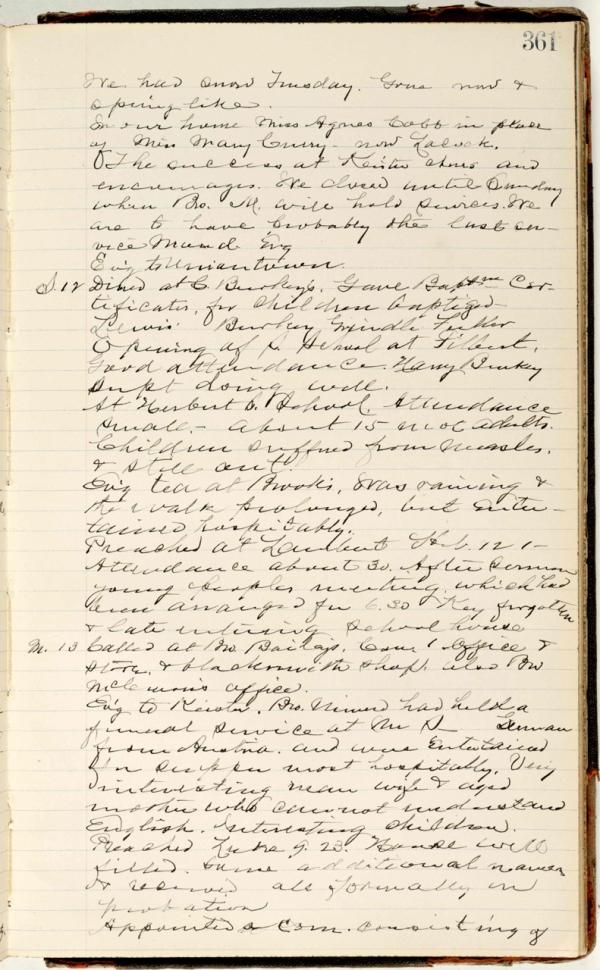 361
We had snow Tuesday. Gone now &
spring like.
In our home Miss Agnes Cobb in place
of Miss Mary Curry - now
The success at Keister cheers and
encourages. We closed until Sunday
when Bro. M. will hold services. We
are to have probably the last ser-
vice Mond Ev'g
Ev'g to Uniontown.
S. 12 Dined at C. Burkey's. Gave Baptm Cer-
tificates, for children baptized
Lewis Burkey
Opening of S. School at Filbert.
Good attendance. Harry Burkey
Supt doing well.
At Herbert S. School. Attendance
small - about 15 incl adults.
Children suffered from measles,
& still out.
Ev'g tea at Brooks, was raining &
the walk prolonged, but enter-
tained hospitably.
Preached at Lambert Heb. 12 1-
Attendance about 30. After sermon
young peoples meeting, which had
been arranged for 6.30 Key forgotten
& late entering school house
M. 13 Called at Bro. Bailey's, Com'l Office &
store, & blacksmith shop. also Bro
office.
Ev'g to Keister. Bro. had held a
funeral service at Mr S German
from Austria. and were entertained
for supper most hospitably. Very
interesting man wife & aged
mother who cannot understand
English. Interesting children.
Preached Luke 9. 23. House well
filled. Some additional names
& received all formally on
probation
Appointed a Com. consisting of